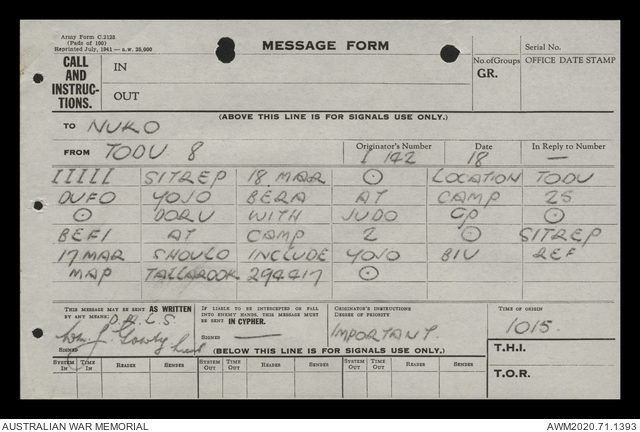 Army Form C.2128
(Pads of 100)
Reprinted July, 1941—s.w. 35,000
MESSAGE FORM
Serial No.
CALL AND INSTRUC-TIONS.
IN
OUT
No. of Groups
GR.
OFFICE DATE STAMP
(ABOVE THIS LINE IS FOR SIGNALS USE ONLY.)
TO NUKO
FROM TODU 8
Originator's Number
I 142
Date
18
In Reply to Number
—
IIIII SITREP 18 MAR ⊙ LOCATION TODU
DUFO YOJO BERA AT CAMP 25
⊙ DORU WITH JUDO GP ⊙
BEFI AT CAMP 2 ⊙ SITREP
17 MAR SHOULD INCLUDE YOJO BIV REF
MAP TALLAROOK 294417 ⊙
THIS MESSAGE MAY BE SENT AS WRITTEN BY ANY MEANS.
D.R.L.S.
SIGNED
IF LIABLE TO BE INTERCEPTED OR FALL INTO ENEMY HANDS, THIS MESSAGE MUST BE SENT IN CYPHER.
SIGNED —
ORIGINATOR'S INSTRUCTIONS
DEGREE OF PRIORITY
IMPORTANT.
TIME OF ORIGIN
1015.
T.H.I.
T.O.R.
(BELOW THIS LINE IS FOR SIGNALS USE ONLY.)
SYSTEM IN TIME IN READER SENDER SYSTEM OUT TIME OUT READER SENDER SYSTEM OUT TIME OUT READER SENDER
AUSTRALIAN WAR MEMORIAL
AWM2020.71.1393